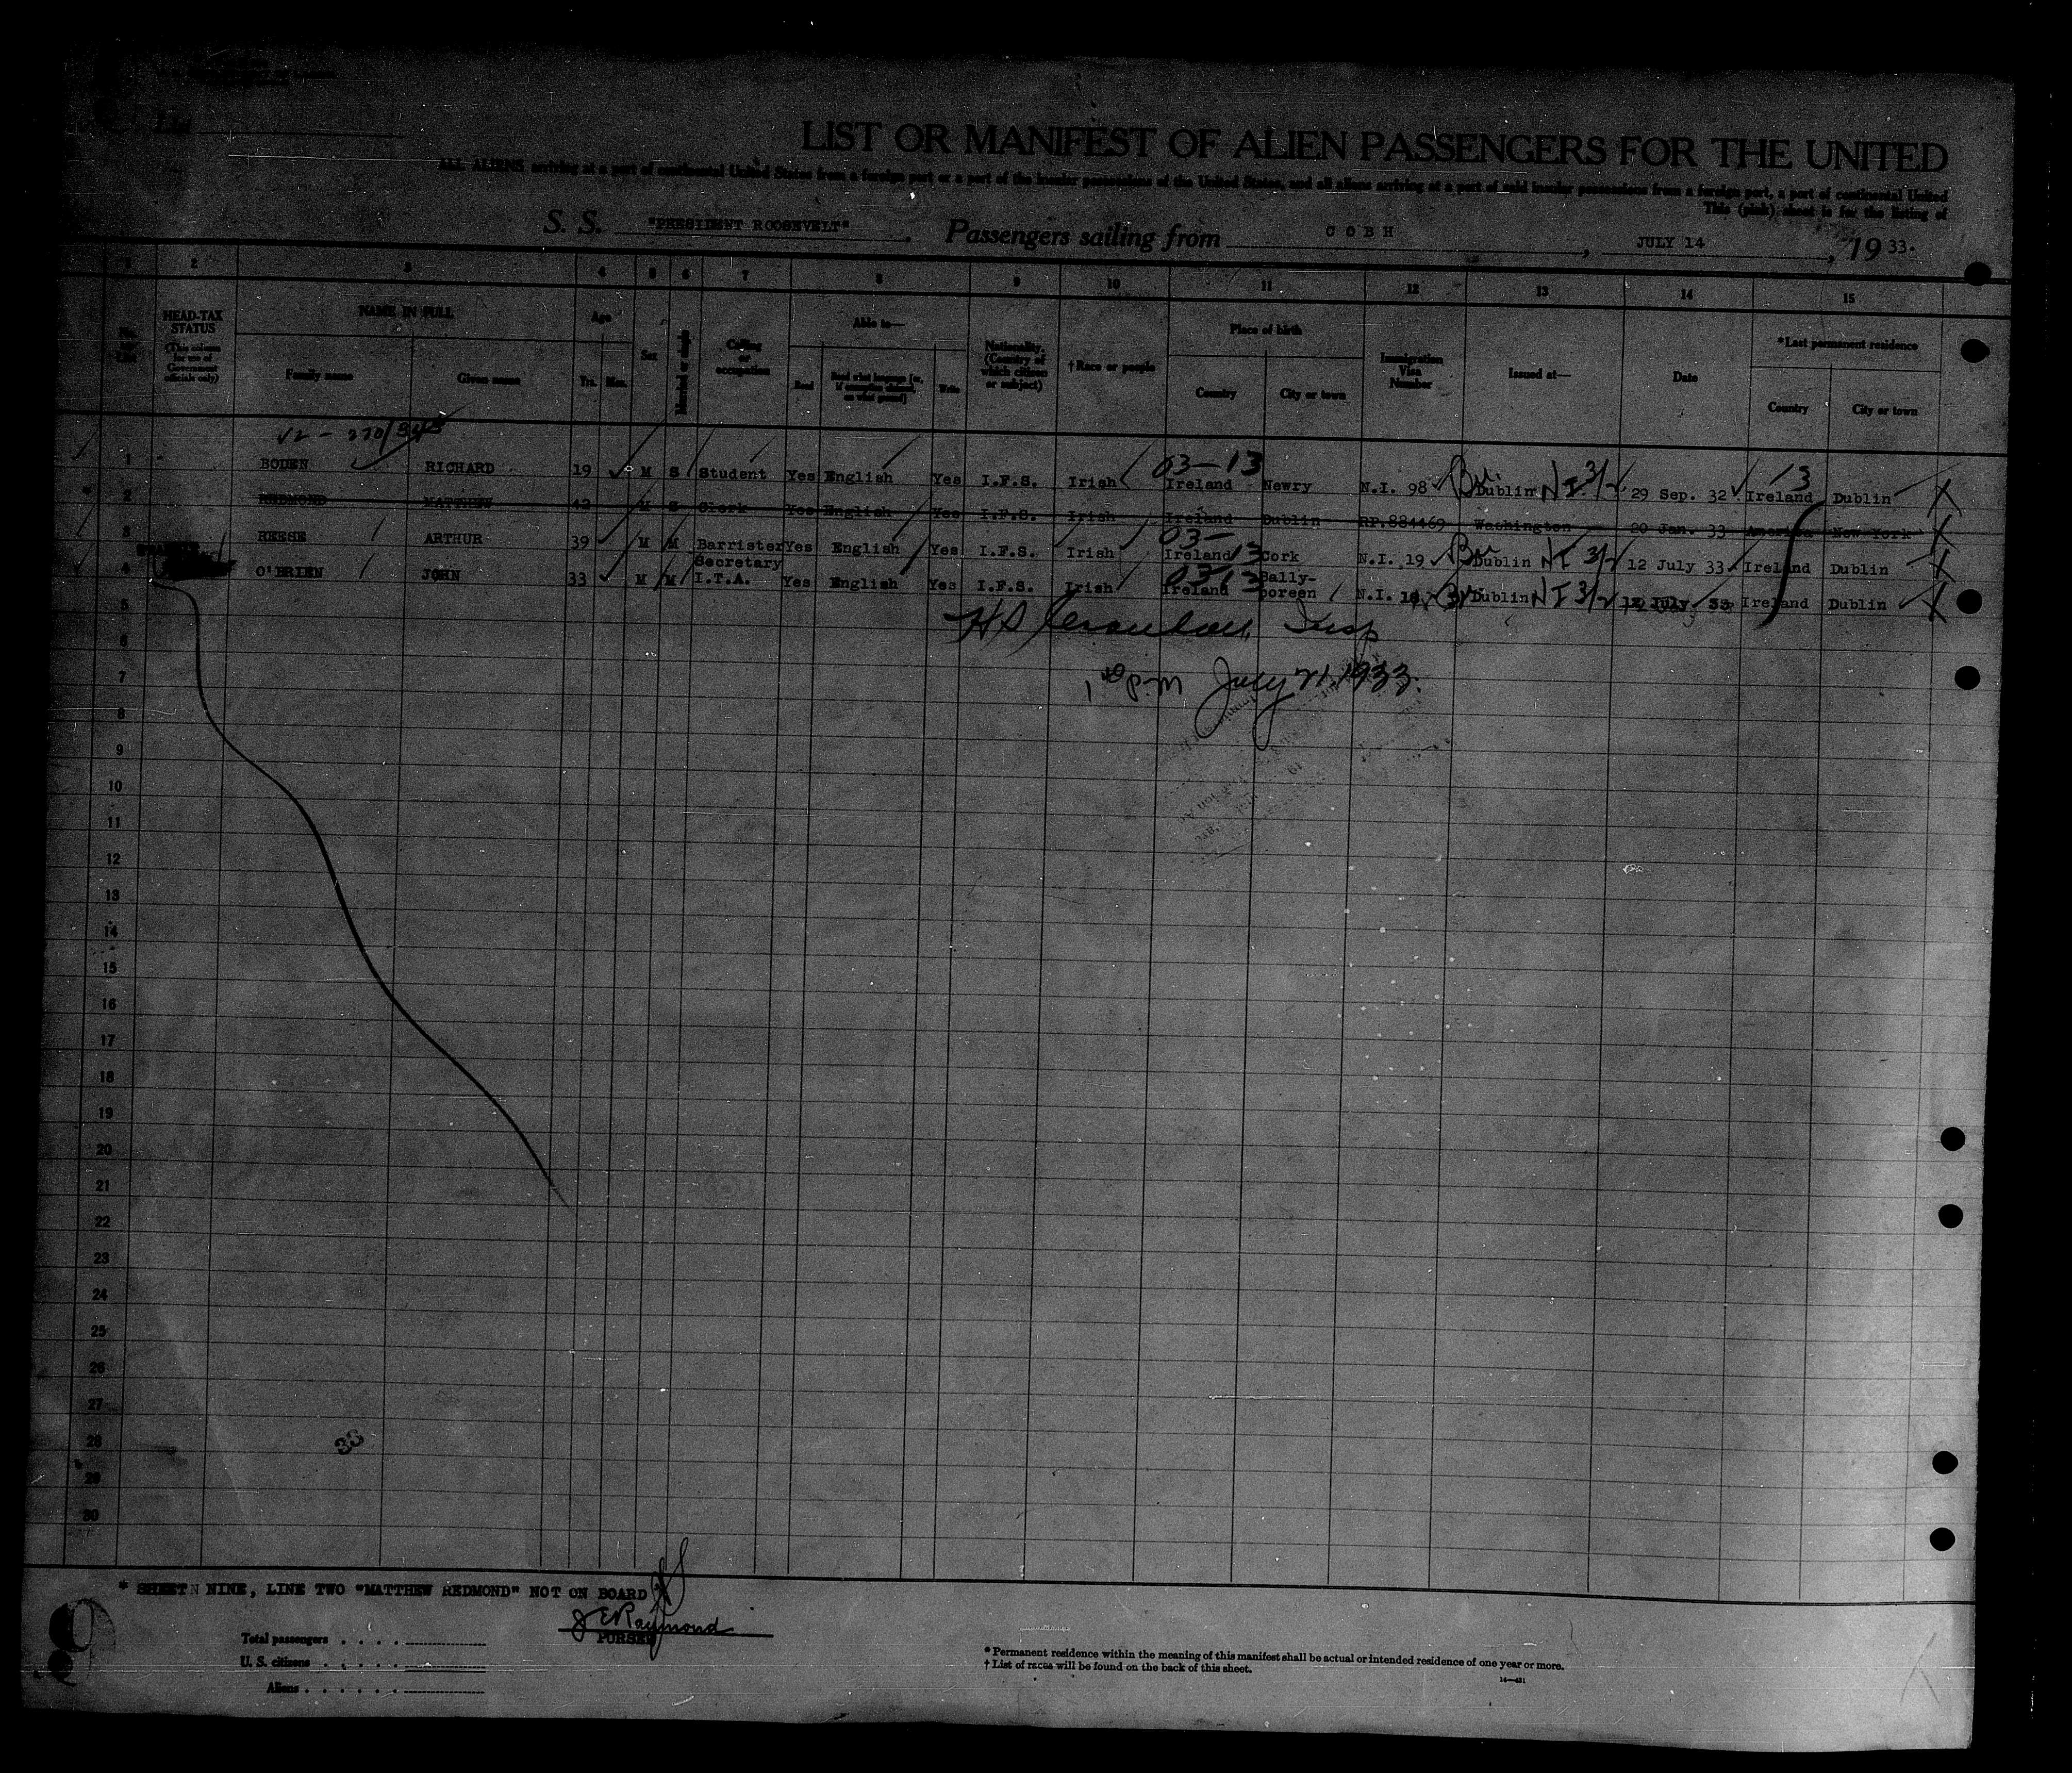 List
LIST OR MANIFEST OF ALIEN PASSENGERS FOR THE UNITED
ALL ALIENS arriving at a port of continental United States from a foreign port or a port of the insular possessions of the United States, and all aliens arriving at a port of said insular possessions from a foreign port, a port of continental United
This (pink) sheet is for the listing of
S. S. "PRESIDENT ROOSEVELT" . Passengers sailing from COBH , JULY 14 , 19 33.
1 2 3 4 5 6 7 8 9 10 11 12 13 14 15
No. on List
HEAD-TAX STATUS (This column for use of Government officials only)
NAME IN FULL
Family name Given name
Age
Yrs. Mos.
Sex
Married or single
Calling or occupation
Able to—
Read Read what language [or, if exemption claimed, on what ground] Write
Nationality. (Country of which citizen or subject)
†Race or people
Place of birth
Country City or town
Immigration Visa Number
Issued at—
Date
*Last permanent residence
Country City or town
03-13 13
1 BODEN RICHARD 19 M S Student Yes English Yes I.F.S. Irish Ireland Newry N.I. 98 Dublin NI 3/2 29 Sep. 32 Ireland Dublin X
* 2 REDMOND MATTHEW 42 M S Clerk Yes English Yes I.F.S. Irish Ireland Dublin RP.884469 Washington 20 Jan. 33 America New York X
03-13
3 REESE ARTHUR 39 M M Barrister Yes English Yes I.F.S. Irish Ireland Cork N.I. 19 Dublin NI 3/2 12 July 33 Ireland Dublin X
0313
4 O'BRIEN JOHN 33 M M Secretary I.T.A. Yes English Yes I.F.S. Irish Ireland Bally-poreen N.I. Dublin NI 3/2 12 July 33 Ireland Dublin X
5
6
Insp
7
July 21, 1933.
8
9
10
11
12
13
14
15
16
17
18
19
20
21
22
23
24
25
26
27
28
33
29
30
* SHEET NINE, LINE TWO "MATTHEW REDMOND" NOT ON BOARD
J E Raymond
PURSER
9
Total passengers . . . .
U. S. citizens . . . .
Aliens . . . . . .
* Permanent residence within the meaning of this manifest shall be actual or intended residence of one year or more.
† List of races will be found on the back of this sheet.